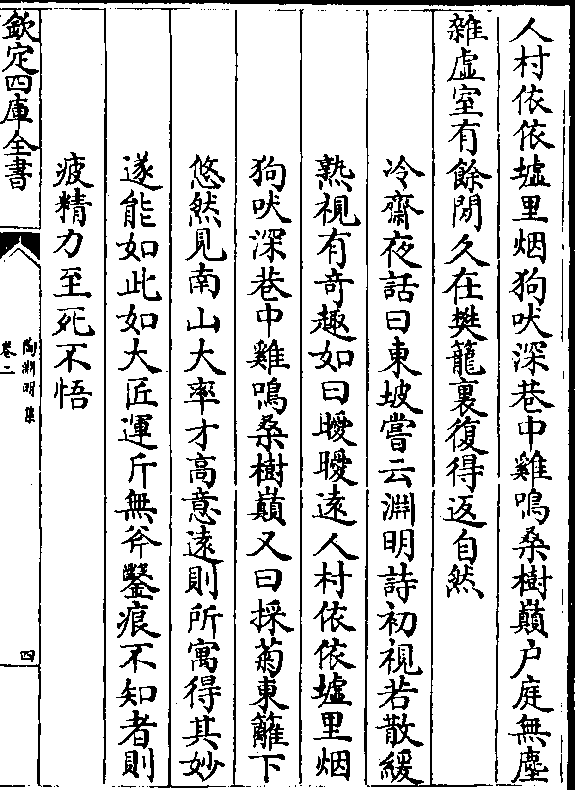 人村依依墟里烟狗吠深巷中雞鳴桑樹巔户庭無塵
雜虚室有餘閒久在樊籠裏復得返自然
冷齋夜話曰東坡嘗云淵明詩初視若散緩
熟視有奇趣如曰曖曖遠人村依依墟里烟
狗吠深巷中雞鳴桑樹巔又曰採菊東籬下
悠然見南山大率才高意遠則所寓得其妙
遂能如此如大匠運斤無斧鑿痕不知者則
疲精力至死不悟
欽定四庫全書
陶淵明集
卷二
四